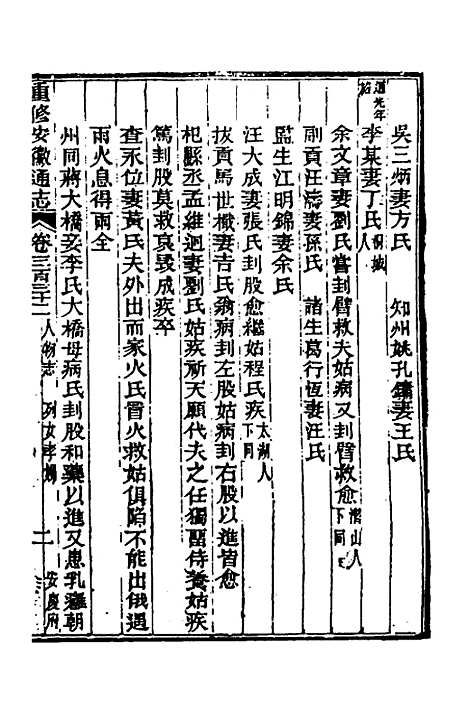 吳三炳妻方氏　知州姚孔鏞妻王氏
道光年
李某妻丁氏桐城人
余文章妻劉氏嘗刲臂救夫姑病又刲臂救愈潛山人下同
副貢汪濤妻孫氏　諸生葛行恆妻汪氏
監生江明錦妻余氏
汪大成妻張氏刲股愈繼姑程氏疾太湖人下同
拔貢馬世檝妻吉氏翁病刲左股姑病刲右股以進皆愈
杞縣丞孟維迥妻劉氏姑疾祈天願代夫之任獨畱侍養姑疾
篤刲股莫救哀毀成疾卒
查永位妻黃氏夫外出而家火氏冒火救姑俱陷不能出俄遇
雨火息得兩全
州同蔣大橋妾李氏大橋母病氏刲股和藥以進又患乳癰朝
重修安徽通志　卷三百三十二　人物志　列女孝婦　二　安慶府